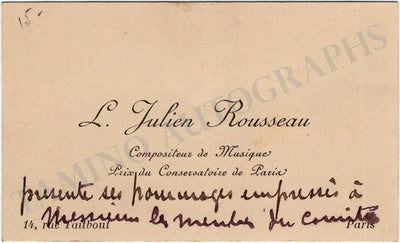 15-
L. Julien Rousseau
Compositeur de Musique
Prix du Conservatoire de Paris
présente ses hommages empressés à
Messieurs les membres du Comité
14, rue Taitbout Paris
TAMINO AUTOGRAPHS